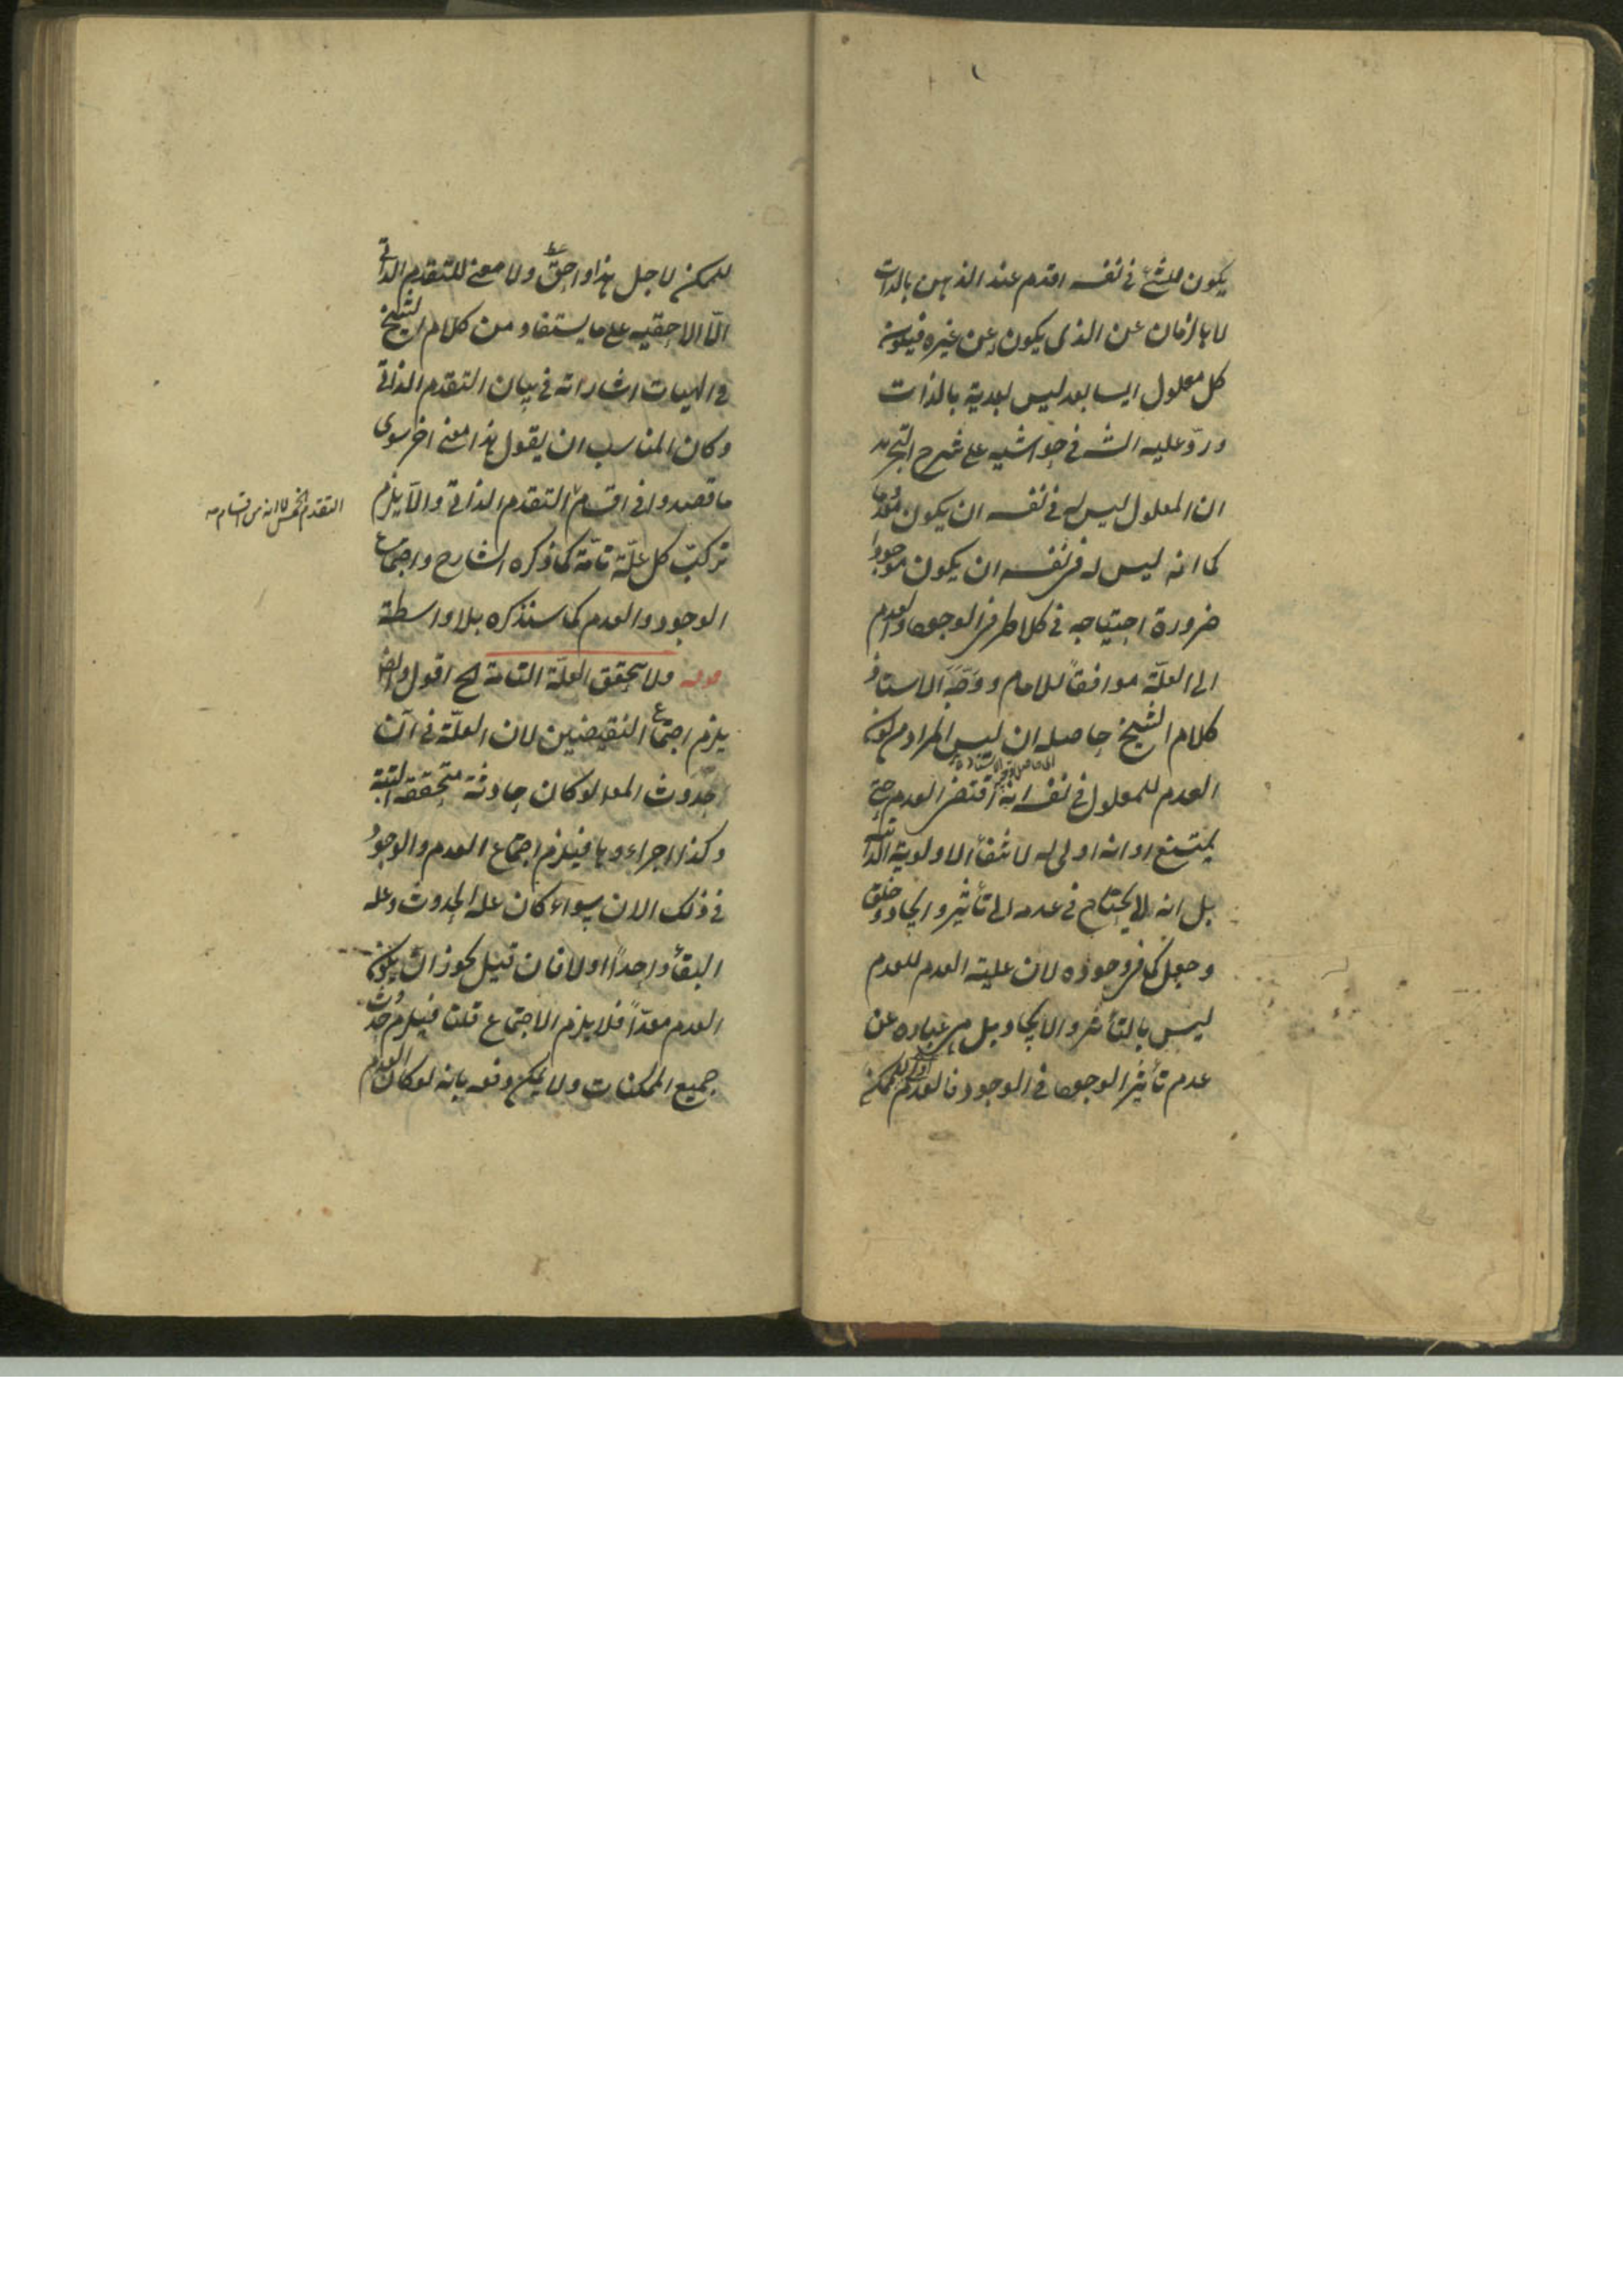 يكون للشئ في نفسه اقدم عند الذهن بالذات
لا بالزمان عن الذي يكون عن غيره فيكون
كل معلول ايسا بعد ليس بعدية بالذات
وردّ عليه الش في حواشيه على شرح التجريد
ان المعلول ليس له في نفسه ان يكون معدوما
كما انه ليس له في نفسه ان يكون موجودا
ضرورة احتياجه في كلا طرفي الوجود والعدم
الى العلّة موافقاً للامام ووجّه الاستاذ
كلام الشيخ حاصله ان ليس المراد من كون
العدم للمعلول في نفسه انه اقتضى العدم حتى
يمتنع او انه اولى له لانتفاء الاولوية الذاتية
بل انه لا يحتاج في عدمه الى تأثير وايجاد وخلق
وجعل كما في وجوده لان علية العدم للعدم
ليس بالتأثير والايجاد بل هي عبارة عن
عدم تأثير الوجود في الوجود فالعدم للممكن
للممكن لاجل هذا واحقّ ولا معنى للتقدم الذاتي
الّا الاحقيه على ما يستفاد من كلام الشيخ
في الهيات اشاراته في بيان التقدم الذاتي
وكان المناسب ان يقول هذا معنى اخر سوى
ما قصدوا في اقسام التقدم الذاتي والّا يلزم
التقدم الخمس لانه من اقسامه
تركّب كل علّة تامّة كما ذكره الشارح واجتماع
الوجود والعدم كما سنذكره بلا واسطة
قوله ولا تحقق العلّة التامة الخ اقول وايضا
يلزم اجتماع النقيضين لان العلّة في آن
حدوث المعلول كان حادثة متحققة البتة
وكذا اجزاءوها فيلزم اجتماع العدم والوجود
في ذلك الان سواء كان علة الحدوث وعلة
البقأ واحداً اولا فان قيل يجوز ان يكون
العدم معدّاً فلا يلزم الاجتماع قلت فيلزم حدوث
جميع الممكنات ولا يمكن دفعه بانه لو كان العدم